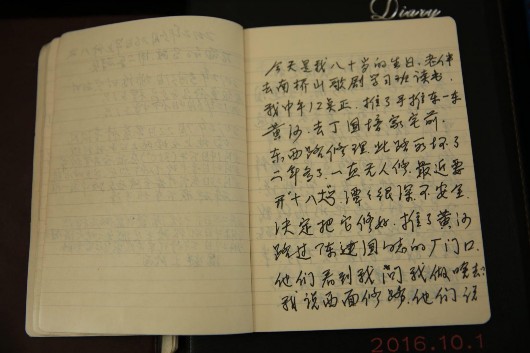 Diary
今天是我八十岁的生日。老伴
去南桥山歌剧学习班读书。
我中午12吴正，推了手推车一车
黄沙。去丁国培家宅前
东西路修理。此路而坏了
二年多了。一直无人修。最近要
开十八号，潭潭很深不安全
决定把它修好。推了黄沙
路过陈建国的厂门口
他们看到我问我做啥去？
我说西面修路。他们说
2016.10.1